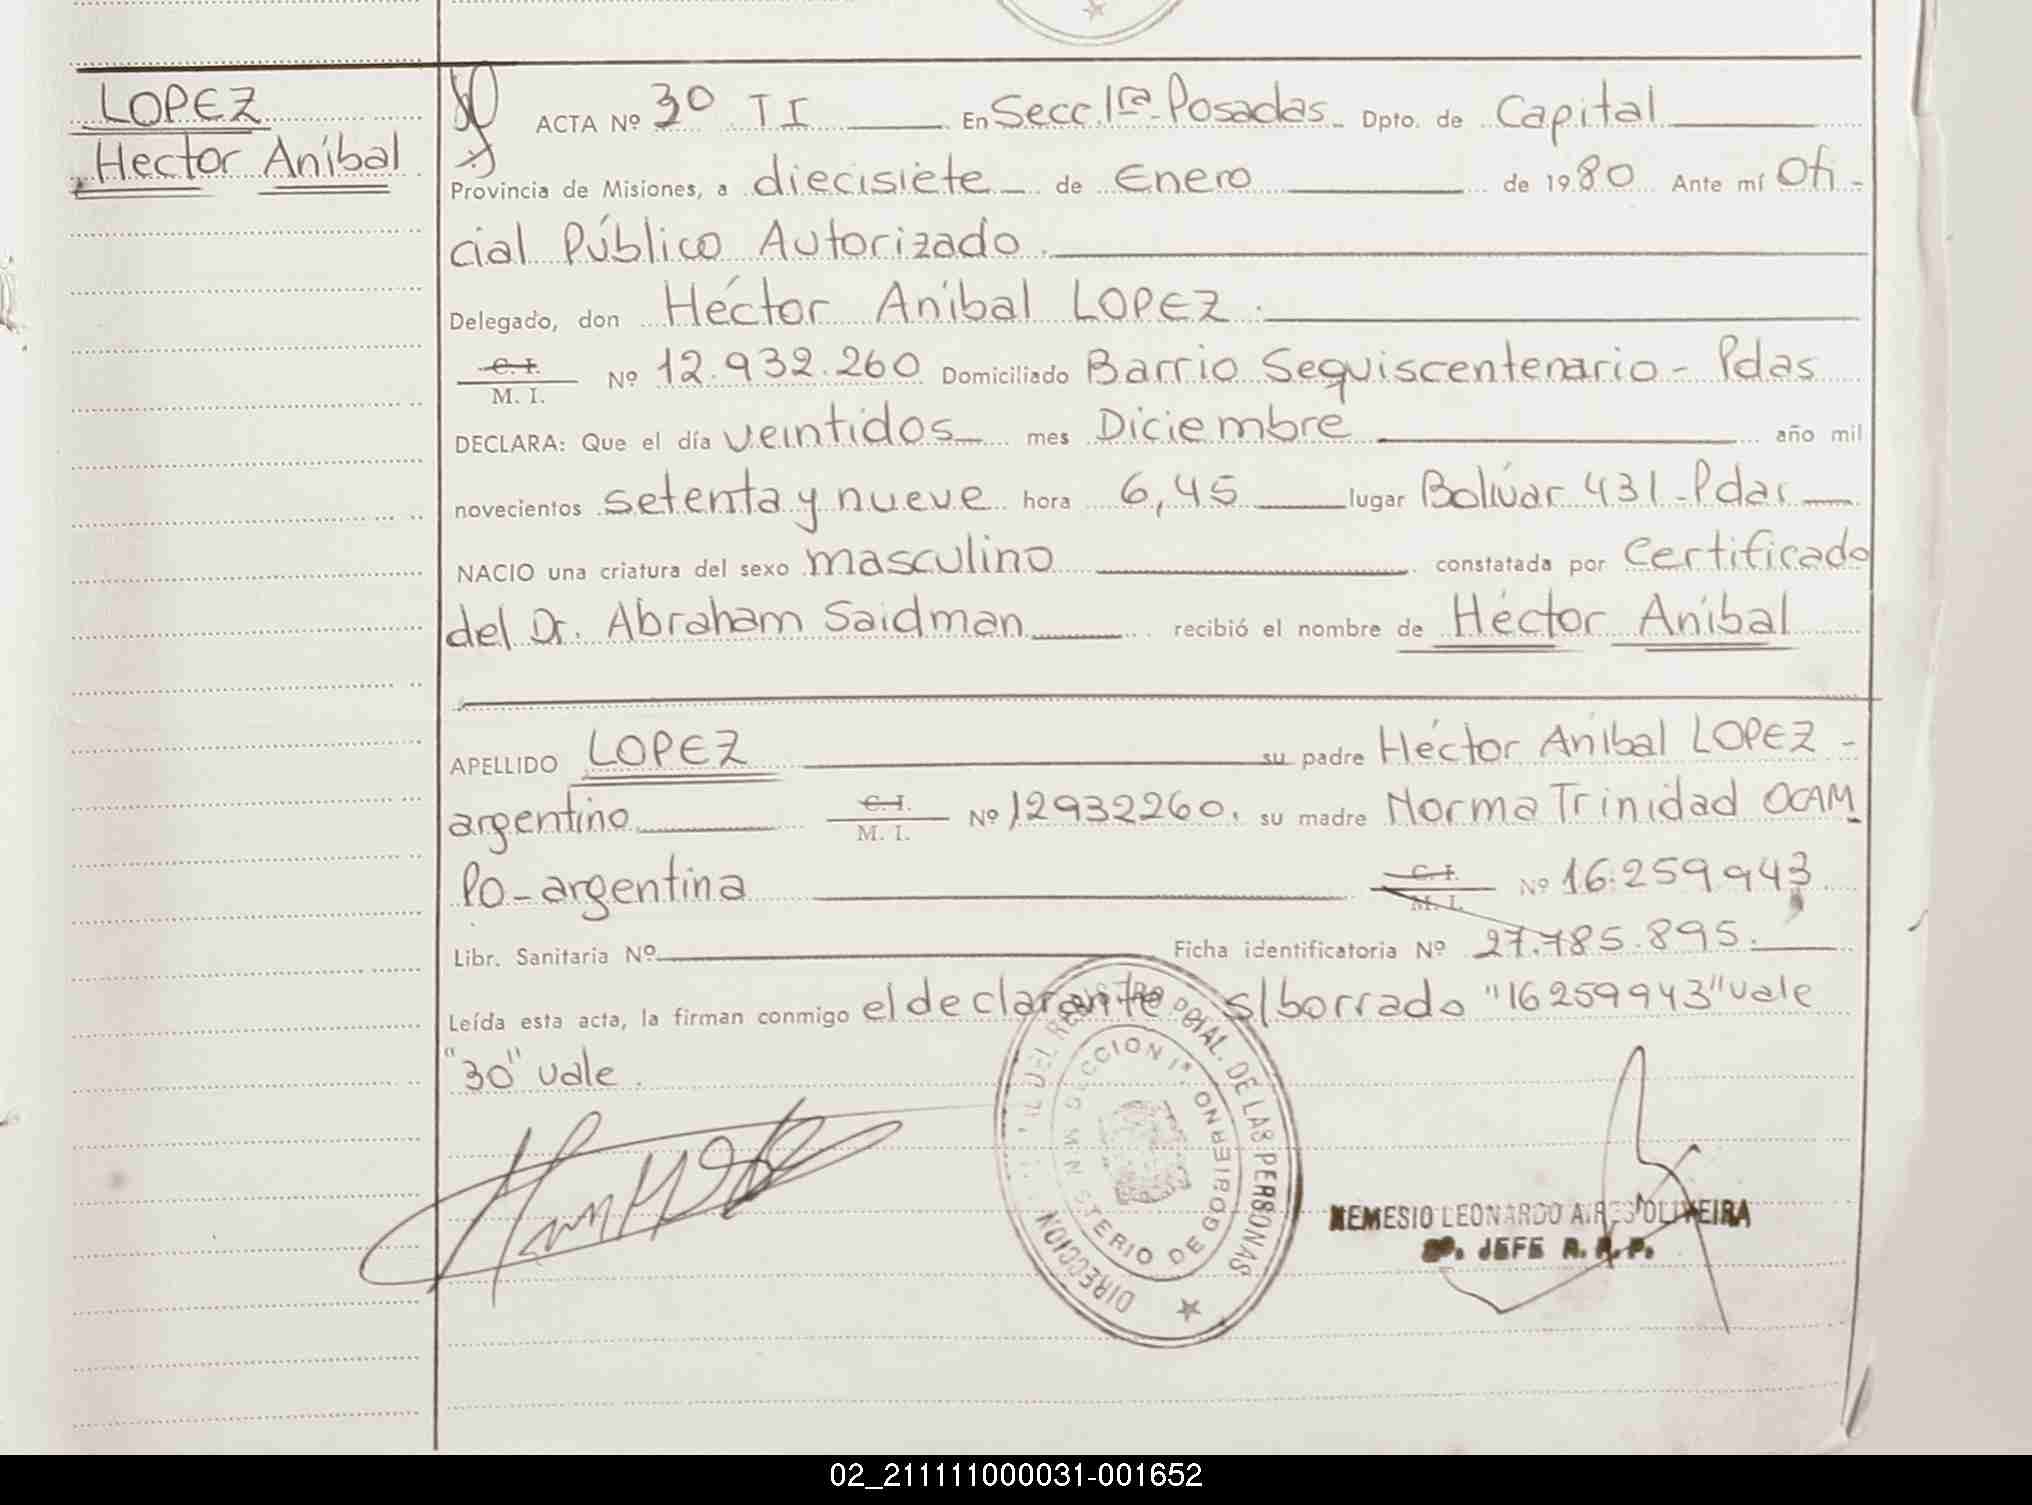 LOPEZ
Hector Aníbal
ACTA Nº 30 T I En Secc 1ra Posadas Dpto. de Capital
Provincia de Misiones, a diecisiete de Enero de 1980 Ante mí Ofi-
cial Público Autorizado.
Delegado, don Héctor Aníbal LOPEZ.
C. I.
M. I. Nº 12.932.260 Domiciliado Barrio Sequiscentenario - Pdas
DECLARA: Que el día veintidos mes Diciembre año mil
novecientos setenta y nueve hora 6,45 lugar Bolívar 431-Pdas
NACIO una criatura del sexo masculino constatada por Certificado
del Dr. Abraham Saidman recibió el nombre de Héctor Aníbal
APELLIDO LOPEZ su padre Héctor Aníbal LOPEZ -
argentino C. I.
M. I. Nº 12932260. su madre Norma Trinidad OCAM
PO-argentina C. I.
M. I. Nº 16.259943
Libr. Sanitaria Nº Ficha identificatoria Nº 27.785.895.
Leída esta acta, la firman conmigo el declarante s/borrado "16259943" vale
"30" vale.
DIRECCION DEL REGISTRO PCIAL. DE LAS PERSONAS
SECCION 1ª. MINISTERIO DE GOBIERNO
NEMESIO LEONARDO AIRES OLIVEIRA
JEFE R. P. P.
02_211111000031-001652